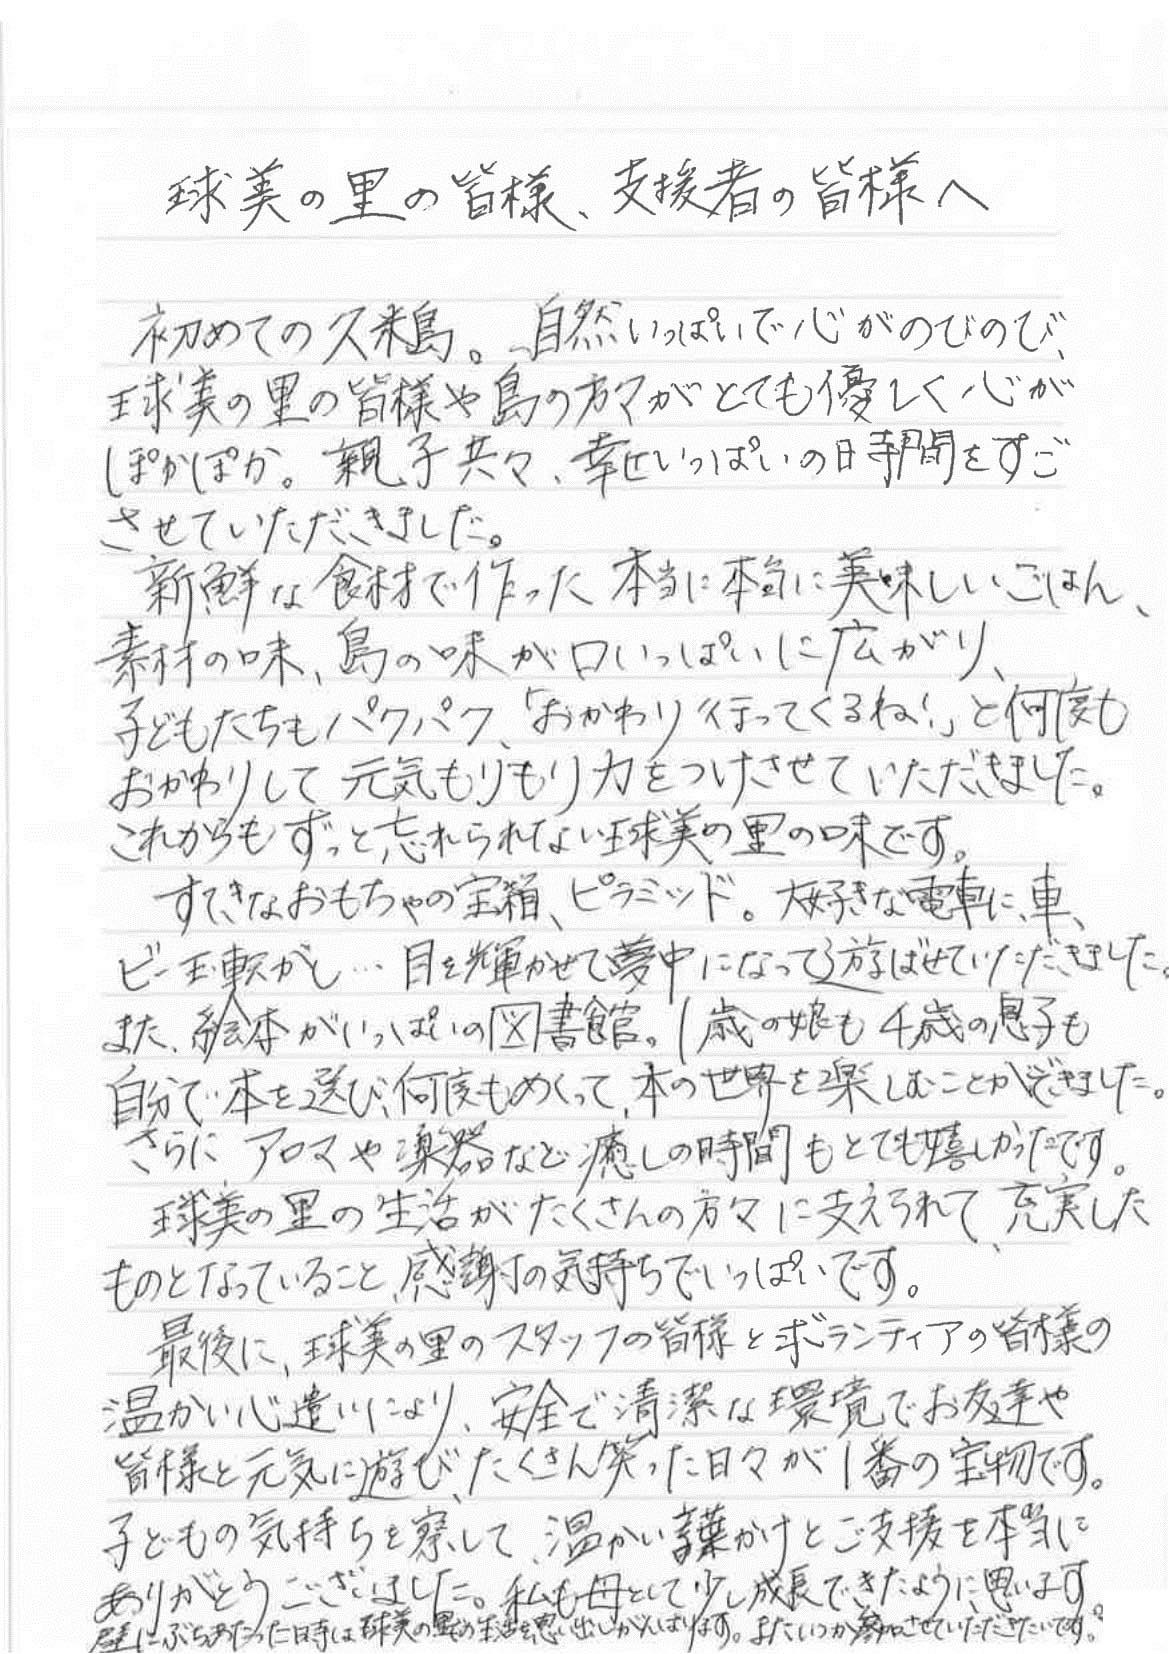 球美の里の皆様、支援者の皆様へ
初めての久米島。自然いっぱいで心がのびのび、
球美の里の皆様や島の方々がとても優しく心が
ぽかぽか。親子共々、幸せいっぱいの日時間をすご
させていただきました。
新鮮な食材で作った本当に本当に美味しいごはん、
素材の味、島の味が口いっぱいに広がり、
子どもたちもパクパク、「おかわり行ってくるね!」と何度も
おかわりして元気もりもり力をつけさせていただきました。
これからもずっと忘れられない球美の里の味です。
すてきなおもちゃの宝箱、ピラミッド。大好きな電車に、車、
ビー玉転がし…目を輝かせて夢中になって遊ばせていただきました。
また、絵本がいっぱいの図書館。1歳の娘も4歳の息子も
自分で本を選び、何度もめくって、本の世界を楽しむことができました。
さらにアロマや楽器など癒しの時間もとても嬉しかったです。
球美の里の生活がたくさんの方々に支えられて、充実した
ものとなっていること、感謝の気持ちでいっぱいです。
最後に、球美の里のスタッフの皆様とボランティアの皆様の
温かい心遣いにより、安全で清潔な環境でお友達や
皆様と元気に遊び、たくさん笑った日々が1番の宝物です。
子どもの気持ちを察して、温かい言葉かけとご支援を本当に
ありがとうございました。私も母として少し成長できたように思います。
壁にぶちあたった時は球美の里での生活を思い出しがんばります。またいつか参加させていただきたいです。